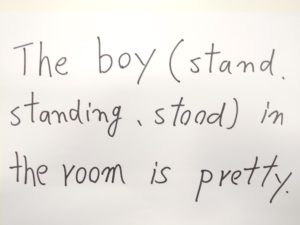 The boy (stand.
standing、stood) in
the room is pretty.